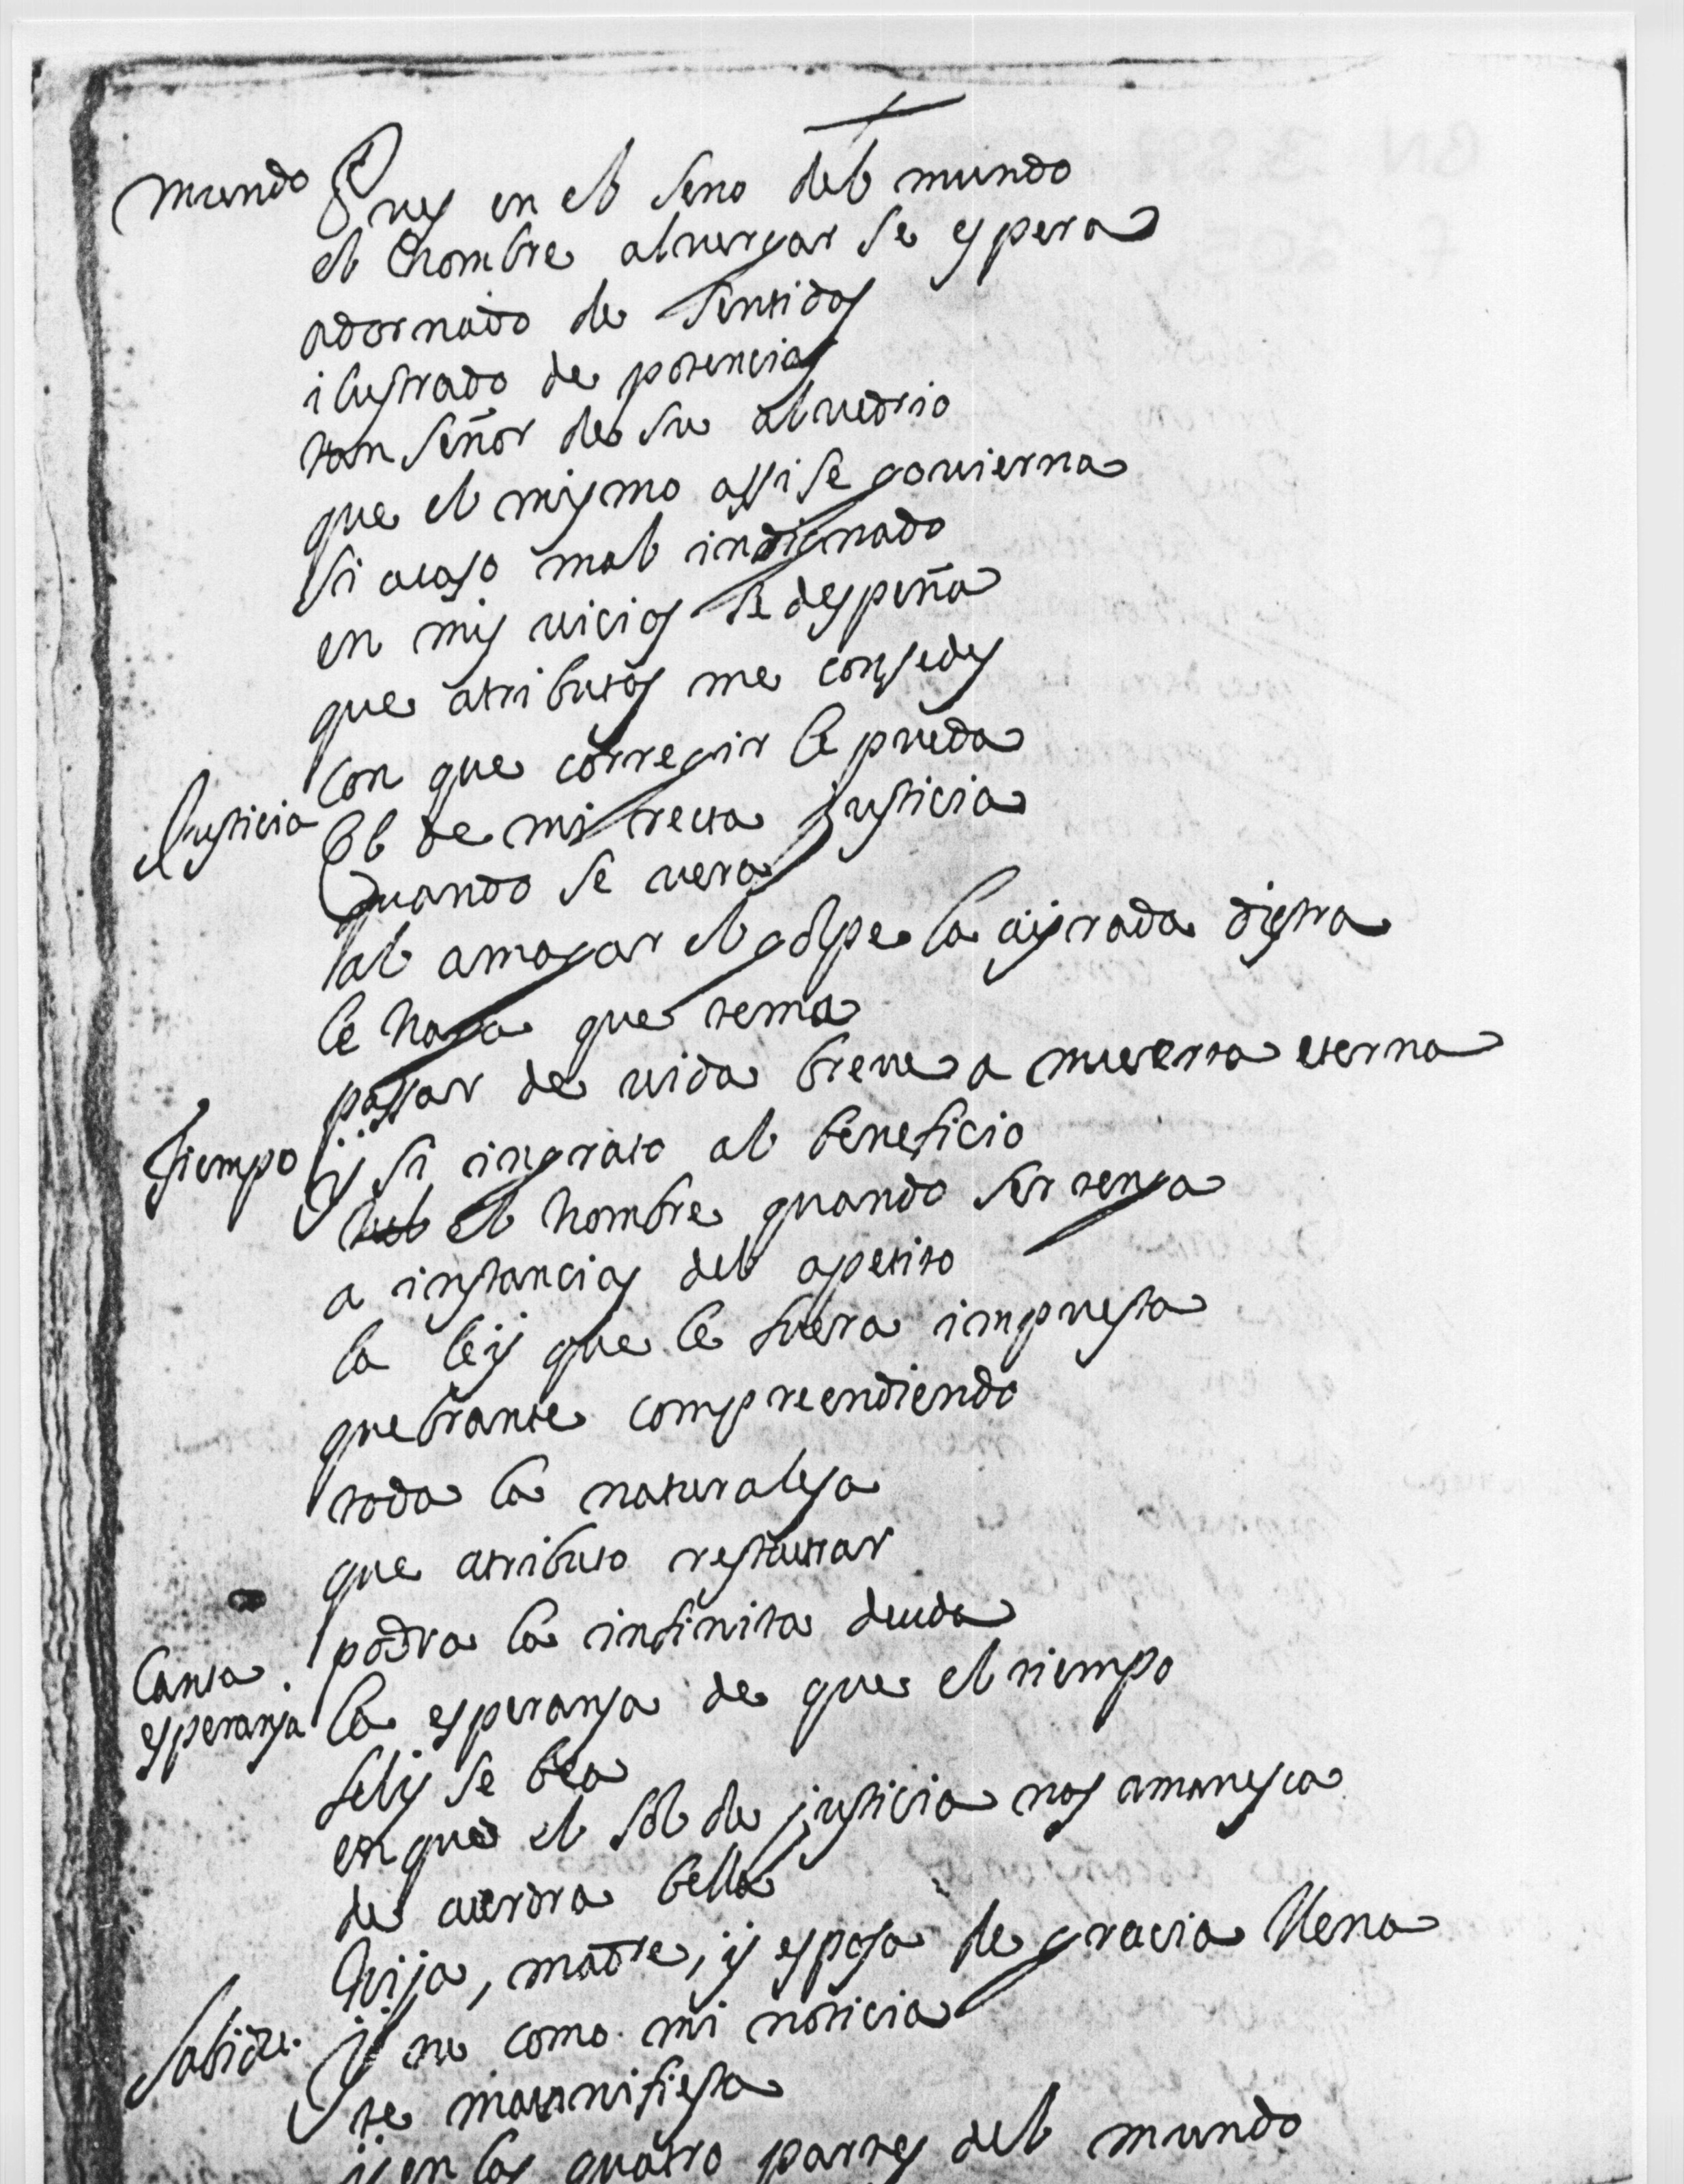 Mundo Pues en el seno del mundo
el hombre alvergar se espera
adornado de sentidos
ilustrado de potencias
tan señor de su alvedrio
que el mismo assi se govierna
si acaso mal indignado
en mis vicios se despeña
que atributos me consedes
con que corregir le pueda
Justicia El de mi recta justicia
quando se vera
al amagar el golpe la ayrada diestra
le haga que tema
passar de vida breve a muerta eterna
Tiempo y si ingrato al beneficio
el hombre quando ser tenga
a instancias del apetito
la ley que le fuera impuesta
quebrante compreendiendo
toda la naturalesa
que atributo restaurar
podra la infinita deuda
Canta.
esperansa la esperansa de que el tiempo
felis se bea
en que el sol de justicia nos amanesca
de aurora bella
hija, madre, y esposa de gracia llena
Sabidu. y ve como mi noticia
te manifiesta
y en las quatro partes del mundo